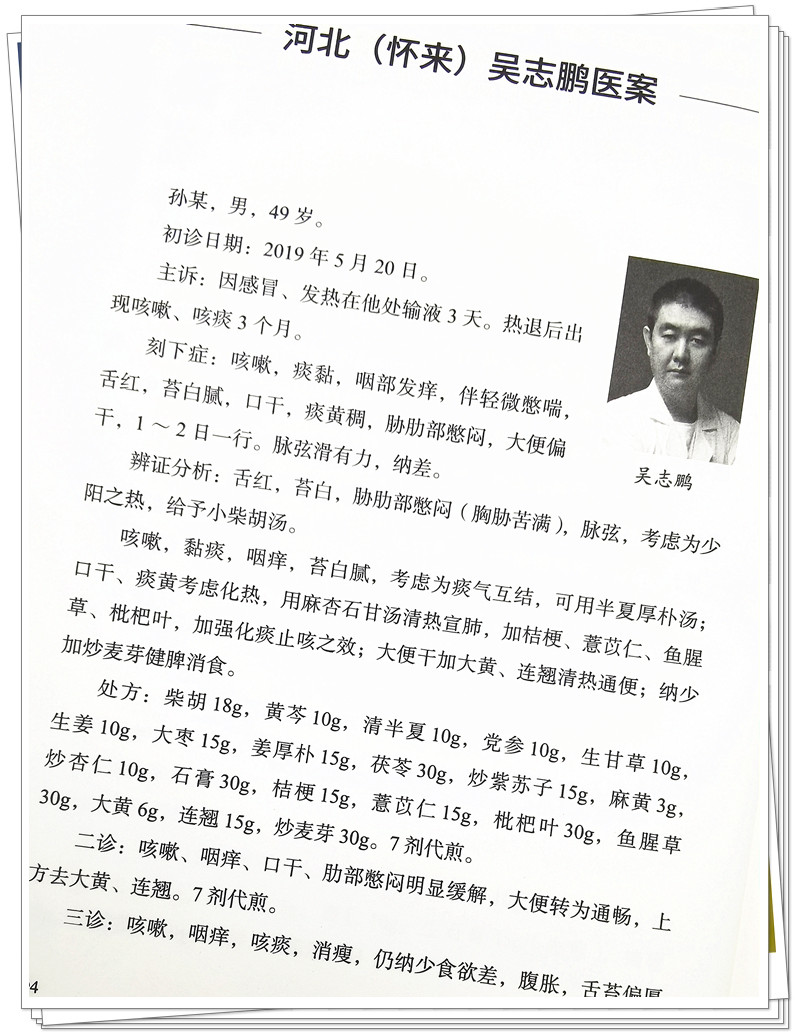 河北（怀来）吴志鹏医案
孙某，男，49 岁。
初诊日期：2019 年 5 月 20 日。
主诉：因感冒、发热在他处输液 3 天。热退后出
现咳嗽、咳痰 3 个月。
刻下症：咳嗽，痰黏，咽部发痒，伴轻微憋喘，
舌红，苔白腻，口干，痰黄稠，胁肋部憋闷，大便偏
干，1～2 日一行。脉弦滑有力，纳差。
吴志鹏
辨证分析：舌红，苔白，胁肋部憋闷（胸胁苦满），脉弦，考虑为少
阳之热，给予小柴胡汤。
咳嗽，黏痰，咽痒，苔白腻，考虑为痰气互结，可用半夏厚朴汤；
口干、痰黄考虑化热，用麻杏石甘汤清热宣肺，加桔梗、薏苡仁、鱼腥
草、枇杷叶，加强化痰止咳之效；大便干加大黄、连翘清热通便；纳少
加炒麦芽健脾消食。
处方：柴胡 18g，黄芩 10g，清半夏 10g，党参 10g，生甘草 10g，
生姜 10g，大枣 15g，姜厚朴 15g，茯苓 30g，炒紫苏子 15g，麻黄 3g，
炒杏仁 10g，石膏 30g，桔梗 15g，薏苡仁 15g，枇杷叶 30g，鱼腥草
30g，大黄 6g，连翘 15g，炒麦芽 30g。7 剂代煎。
二诊：咳嗽、咽痒、口干、肋部憋闷明显缓解，大便转为通畅，上
方去大黄、连翘。7 剂代煎。
三诊：咳嗽，咽痒，咳痰，消瘦，仍纳少食欲差，腹胀，舌苔偏厚
4